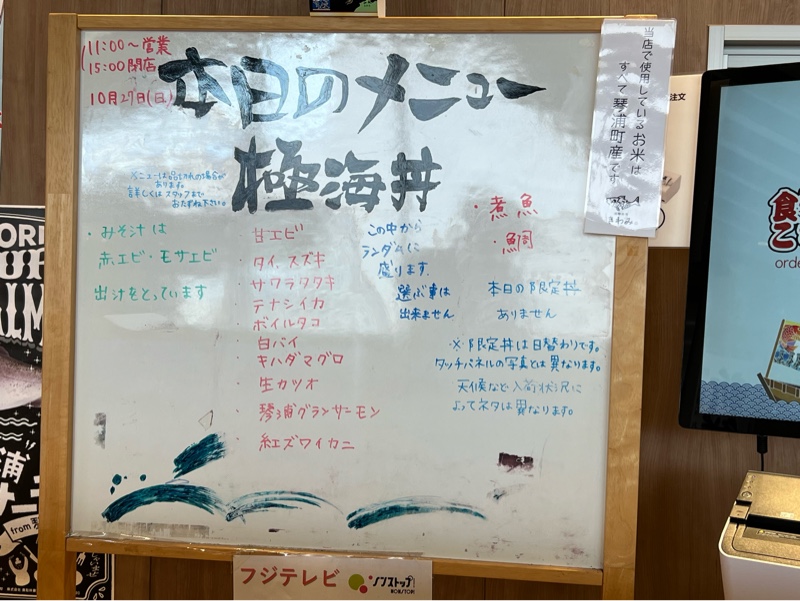 11:00〜営業
15:00閉店
10月27日(日)
本日のメニュー
極海丼
※メニューは品切れの場合が
あります。
詳しくはスタッフまで
おたずね下さい。
・みそ汁は
赤エビ・モサエビ
出汁をとっています
甘エビ
・タイ、スズキ
・サワラタタキ
・テナシイカ
・ボイルタコ
・白バイ
・キハダマグロ
・生カツオ
・琴浦グランサーモン
・紅ズワイカニ
この中から
ランダムに
盛ります。
選ぶ事は
出来ません
・煮魚
・鯛
本日の限定丼
ありません
※限定丼は日替わりです。
タッチパネルの写真とは異なります。
天候など入荷状況に
よってネタは異なります。
当店で使用しているお米は
すべて琴浦町産です
注文
フジテレビ
ノンストップ!
NONSTOP!
orde
from